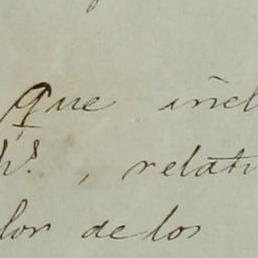 que incl
hs. , relati
lor de los